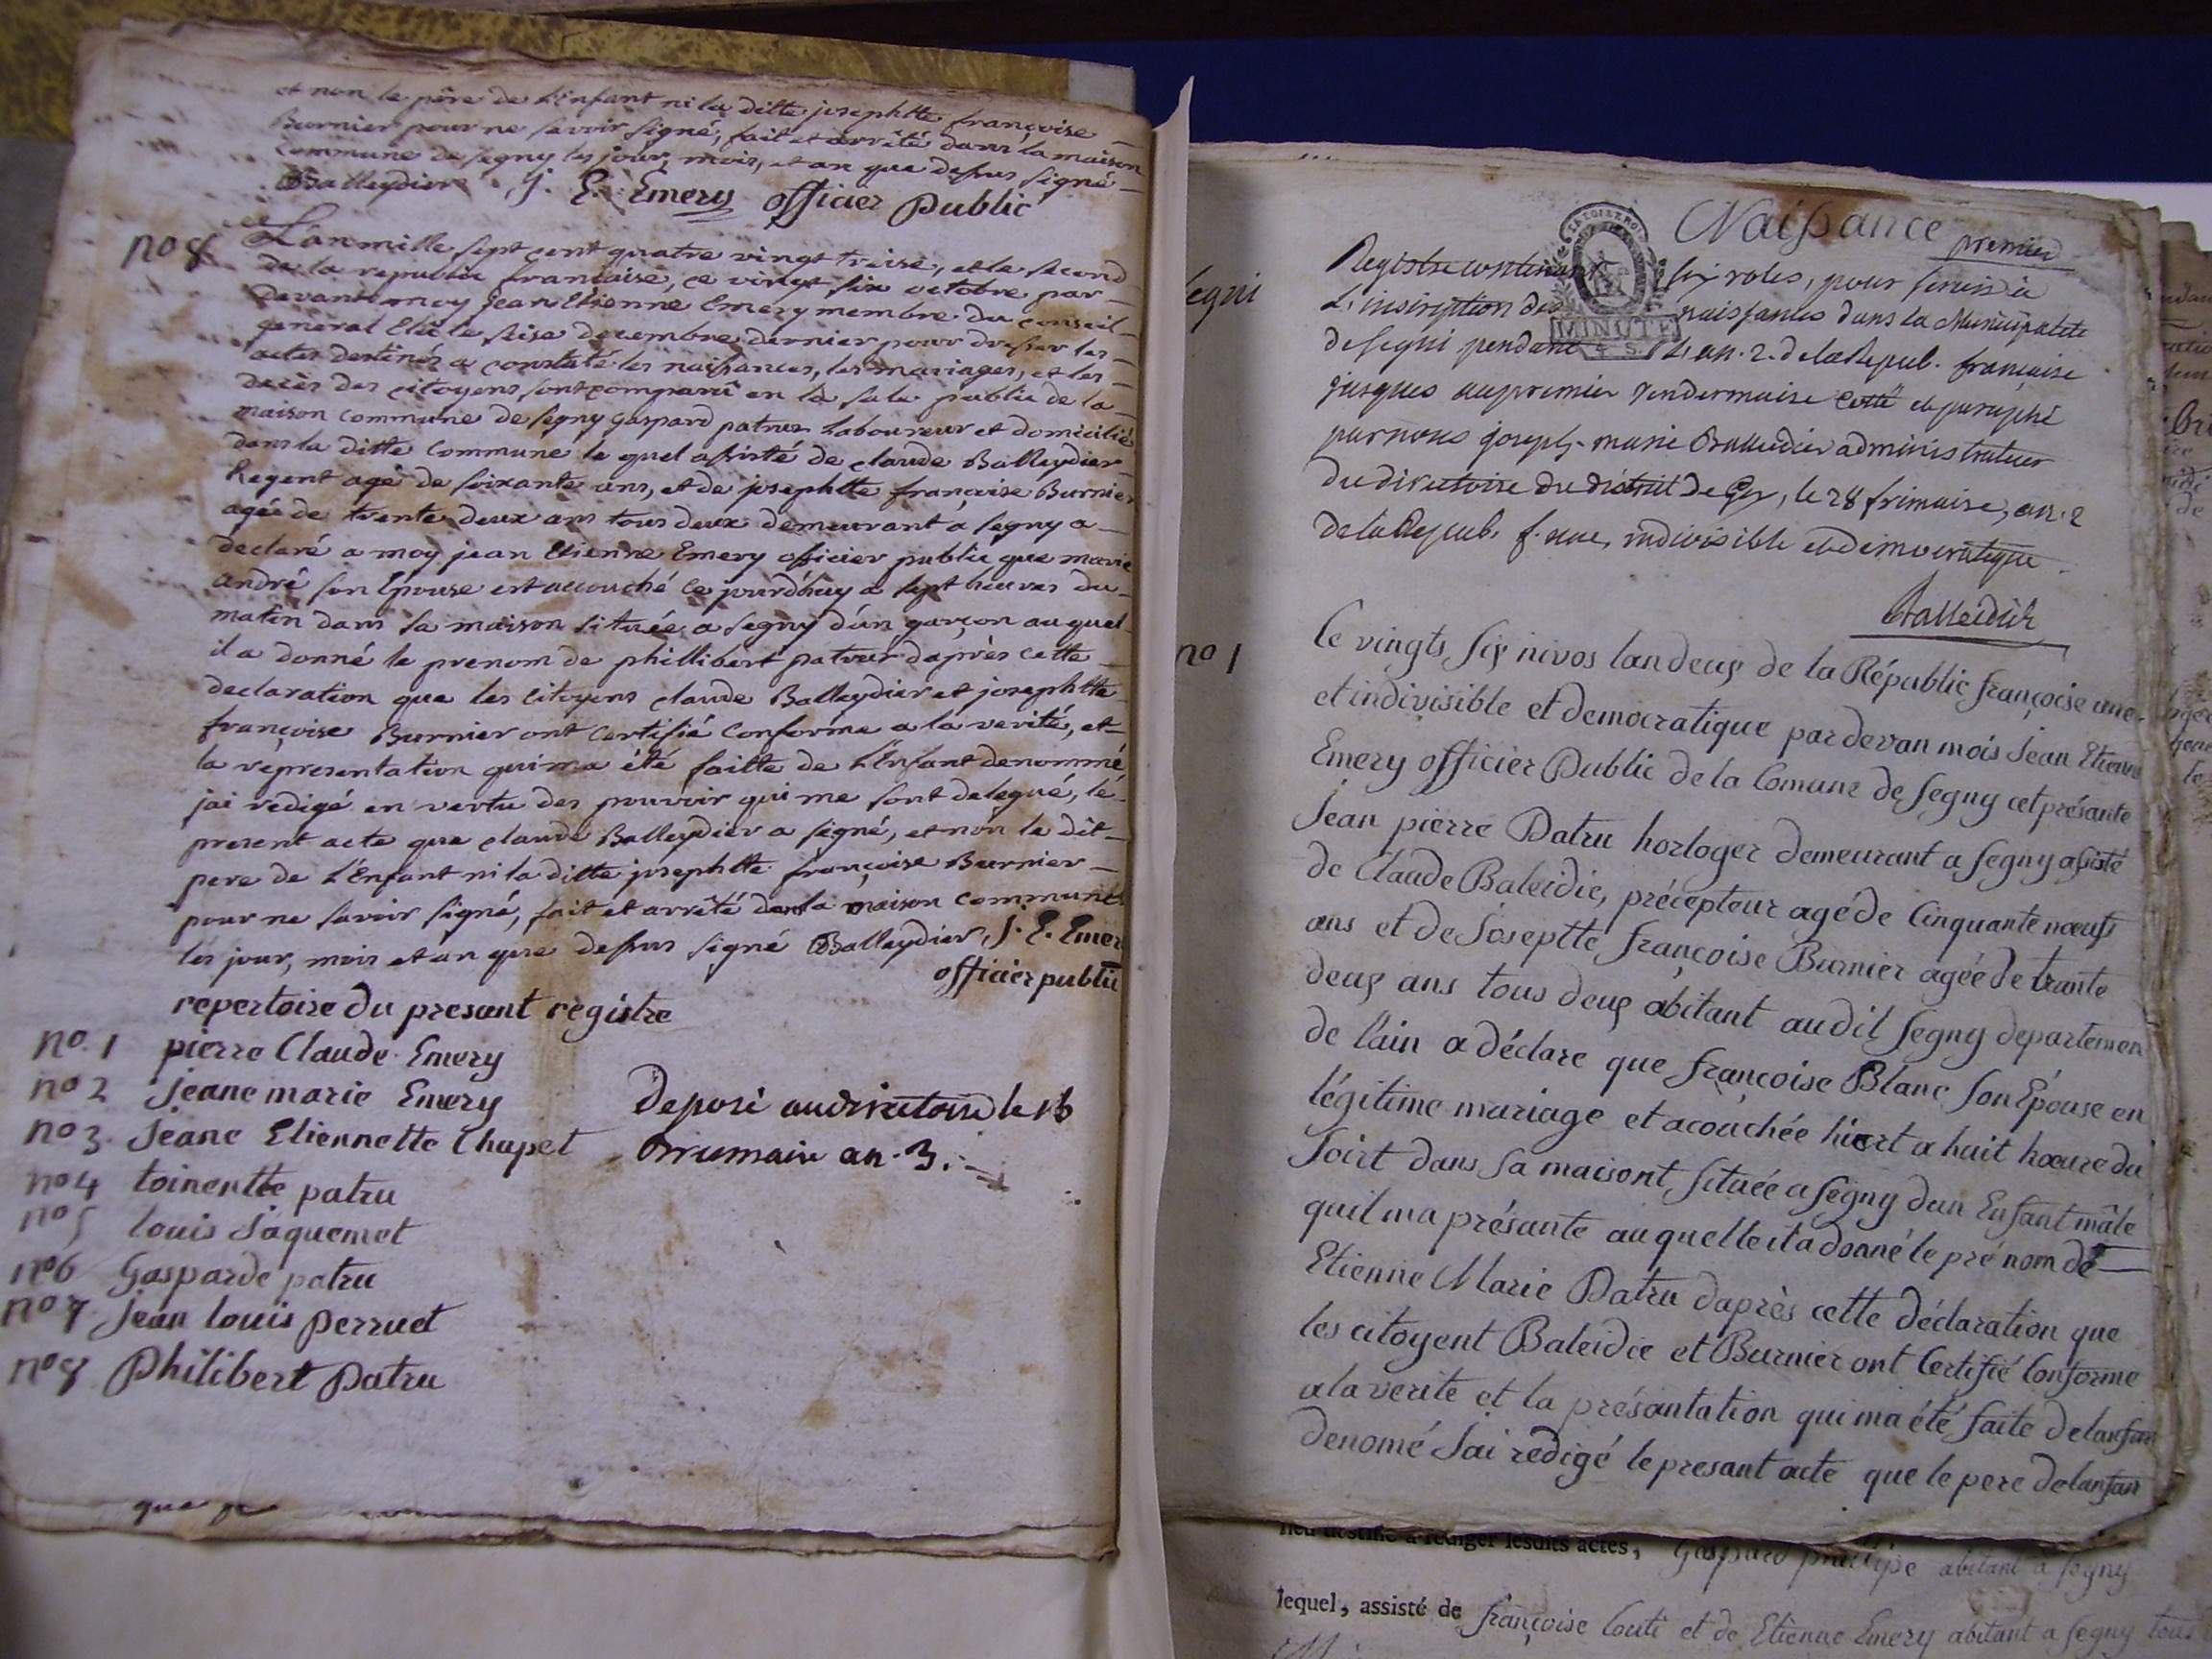 et non le pére de L'Enfant ni la ditte josephtte françoise
Burnier pour ne savoir signé, fait et arrêté dans la maison
Commune de segny les jour, mois, et an que dessus signé
Balleydier J. E. Emery officier Public
no 8
L'an mille sept cent quatre vingt treise, et le second
de la republic francaise, ce vingt six octobre par
devant moy jean Etienne Emery membre du conseil
general Elu le seise decembre dernier pour dresser les
actes destinés a constaté les naissances, les mariages, et les
decès des citoyens sont comparû en la sale public de la
maison commune de segny gaspard patrus Laboureur et domicilié
dans la ditte Commune le quel assisté de claude Balleydier
Regent agé de soixante ans, et de josephtte françoise Burnier
agée de trente deux ans tous deux demeurant a segny a
declaré a moy jean Etienne Emery officier public que marie
andré son Epouse est accouché ce jourd'huy a sept heures du
matin dans sa maison située a segny d'un garçon au quel
il a donné le prenom de phillibert patru d'après cette
declaration que les citoyens claude Balleydier et josephtte
françoise Burnier ont Certifié Conforme a la verité, et
la representation qui m'a été faitte de L'Enfant denommé
jai redigé en vertu des pouvoir qui me sont delegué, le
present acte que claude Balleydier a signé, et non le dit
pere de L'Enfant ni la ditte josephtte françoise Burnier
pour ne savoir signé, fait et arrêté dans la maison commune
les jour, mois et an que dessus signé Balleydier, J. E. Emer
officier public
repertoire du presant registre
no. 1 pierre Claude Emery
no 2 jeane marie Emery
no 3. Jeane Etiennette Chapet
no 4 toinentte patru
no 5 louis Jaquemet
no 6 Gasparde patru
no 7 jean louis perruet
no 8 Philibert Patru
Deposé au directoire le 16
Brumaire an. 3.
que
Naissance
premier
segni
Registre contenant six roles, pour servir à
L'inscription des naissances dans la Municipalité
de Segni pendant L'an. 2. de la Repub. francaise
jusques au premier vendermaire cotté et paraphé
par nous joseph-marie Balleidier administrateur
du directoire du district de Gex, le 28 frimaire, an. 2
de la Repub. f. une, indivisible et democratique
Balleidier
MINUTE
no 1
Ce vingts six nivos lan deux de la Républic françoise une
et indivisible et democratique par devan mois Jean Etienne
Emery officier Public de la Comune de Segny cet présante
Jean pierre Patru horloger demeurant a Segny assisté
de Claude Baleidie, précepteur agé de Cinquante nœufs
ans et de Joseptte françoise Burnier agée de trante
deux ans tous deux abitant audit Segny departemen
de l'ain a déclare que françoise Blanc Son Épouse en
légitime mariage et acouchée hiert a huit hœure du
Soirt dans Sa maisont Située a Segny dun Enfant mâle
quil ma présante au quelle il a donné le pré nom de
Etienne Marie Patru daprès cette déclaration que
les citoyent Baleidie et Burnier ont Certifié Conforme
a la verite et la présantation qui ma été faite de lanfan
denomé Jai redigé le presant acte que le pere de lanfan
rédiger lesdits actes, Gaspard abitant a Segny
lequel, assisté de françoise Couti et de Etienne Emery abitant a Segny tous